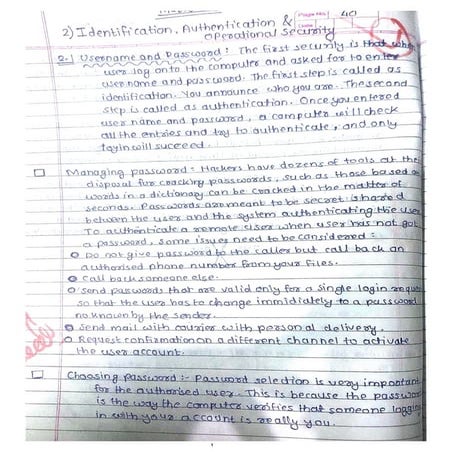 Page No. 40
Date
2) Identification, Authentication &
Operational Security
2.1 Username and Password : The first security is that when
user log onto the computer and asked for to enter
username and password. The first step is called as
identification. You announce who you are. The second
step is called as authentication. Once you entered
user name and password, a computer will check
all the entries and try to authenticate, and only
login will succeed.
Managing password : Hackers have dozens of tools at the
disposal for cracking passwords, such as those based on
words in a dictionary can be cracked in the matter of
seconds. Passwords are meant to be secret shared
between the user and the system authenticating the user
To authenticate a remote user when user has not got
a password, some issues need to be considered :
Do not give password to the caller but call back an
authorised phone number from your files.
Call back someone else.
Send passwords that are valid only for a single login request
so that the user has to change immidiately to a password
no known by the sender.
Send mail with courier with personal delivery.
Request confirmation on a different channel to activate
the user account.
Choosing password :- Password selection is very important
for the authorised user. This is because the password
is the way the computer verifies that someone logging
in with your account is really you.